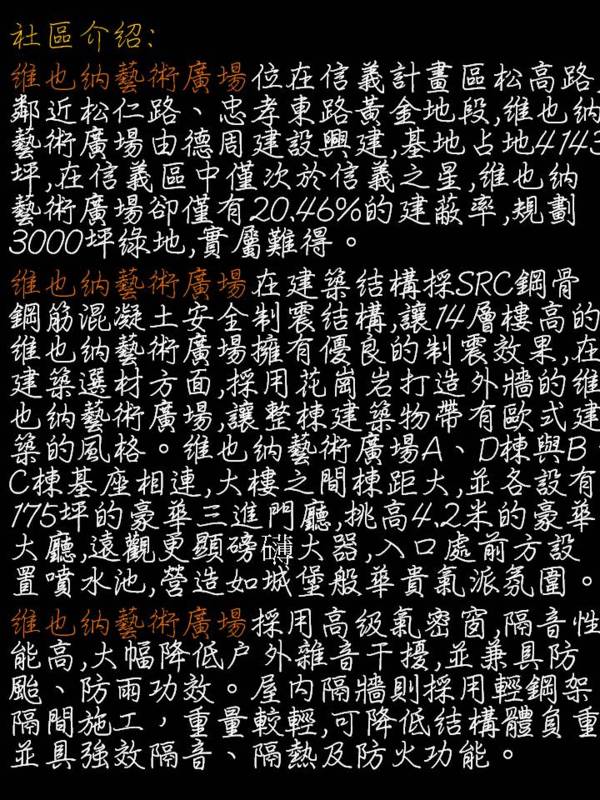 社區介紹:
維也納藝術廣場位在信義計畫區松高路,
鄰近松仁路、忠孝東路黃金地段,維也納
藝術廣場由德周建設興建,基地占地4143
坪,在信義區中僅次於信義之星,維也納
藝術廣場卻僅有20.46%的建蔽率,規劃
3000坪綠地,實屬難得。
維也納藝術廣場在建築結構採SRC鋼骨
鋼筋混凝土安全制震結構,讓14層樓高的
維也納藝術廣場擁有優良的制震效果,在
建築選材方面,採用花崗岩打造外牆的維
也納藝術廣場,讓整棟建築物帶有歐式建
築的風格。維也納藝術廣場A、D棟與B、
C棟基座相連,大樓之間棟距大,並各設有
175坪的豪華三進門廳,挑高4.2米的豪華
大廳,遠觀更顯磅礡大器,入口處前方設
置噴水池,營造如城堡般華貴氣派氛圍。
維也納藝術廣場採用高級氣密窗,隔音性
能高,大幅降低戶外雜音干擾,並兼具防
颱、防雨功效。屋內隔牆則採用輕鋼架
隔間施工，重量較輕,可降低結構體負重
並具強效隔音、隔熱及防火功能。